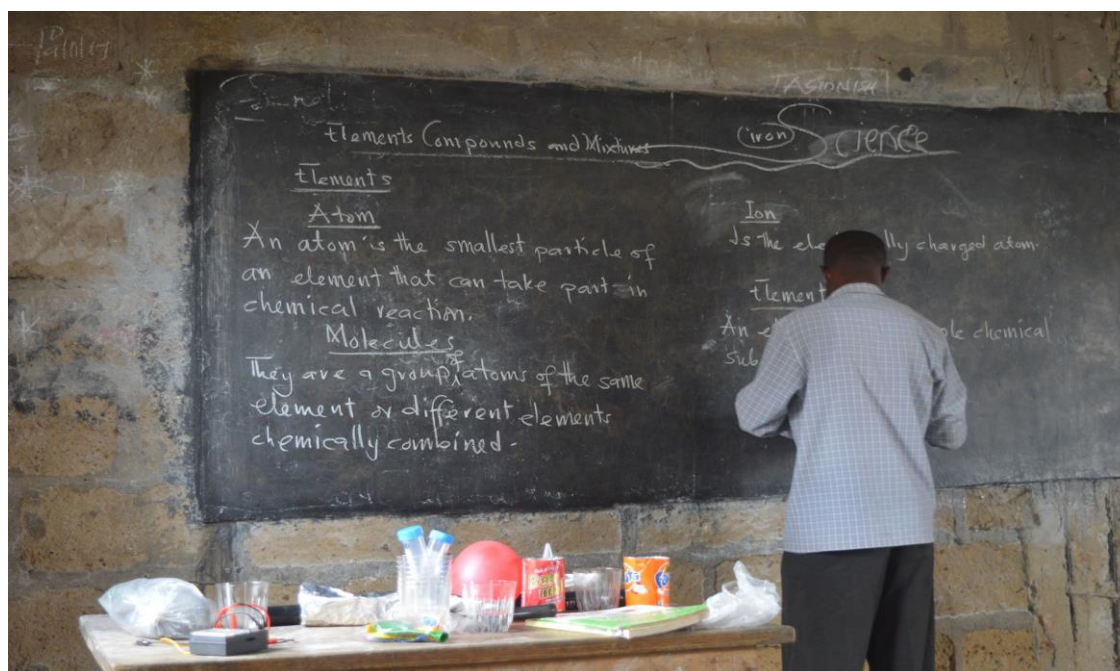 Elements Compounds and Mixtures
Elements
Atom
An atom is the smallest particle of
an element that can take part in
chemical reaction.
Molecules
They are a group of atoms of the same
element or different elements
chemically combined.
(iron) Science
Ion
Is the charged atom.
Element
An chemical
Fanta